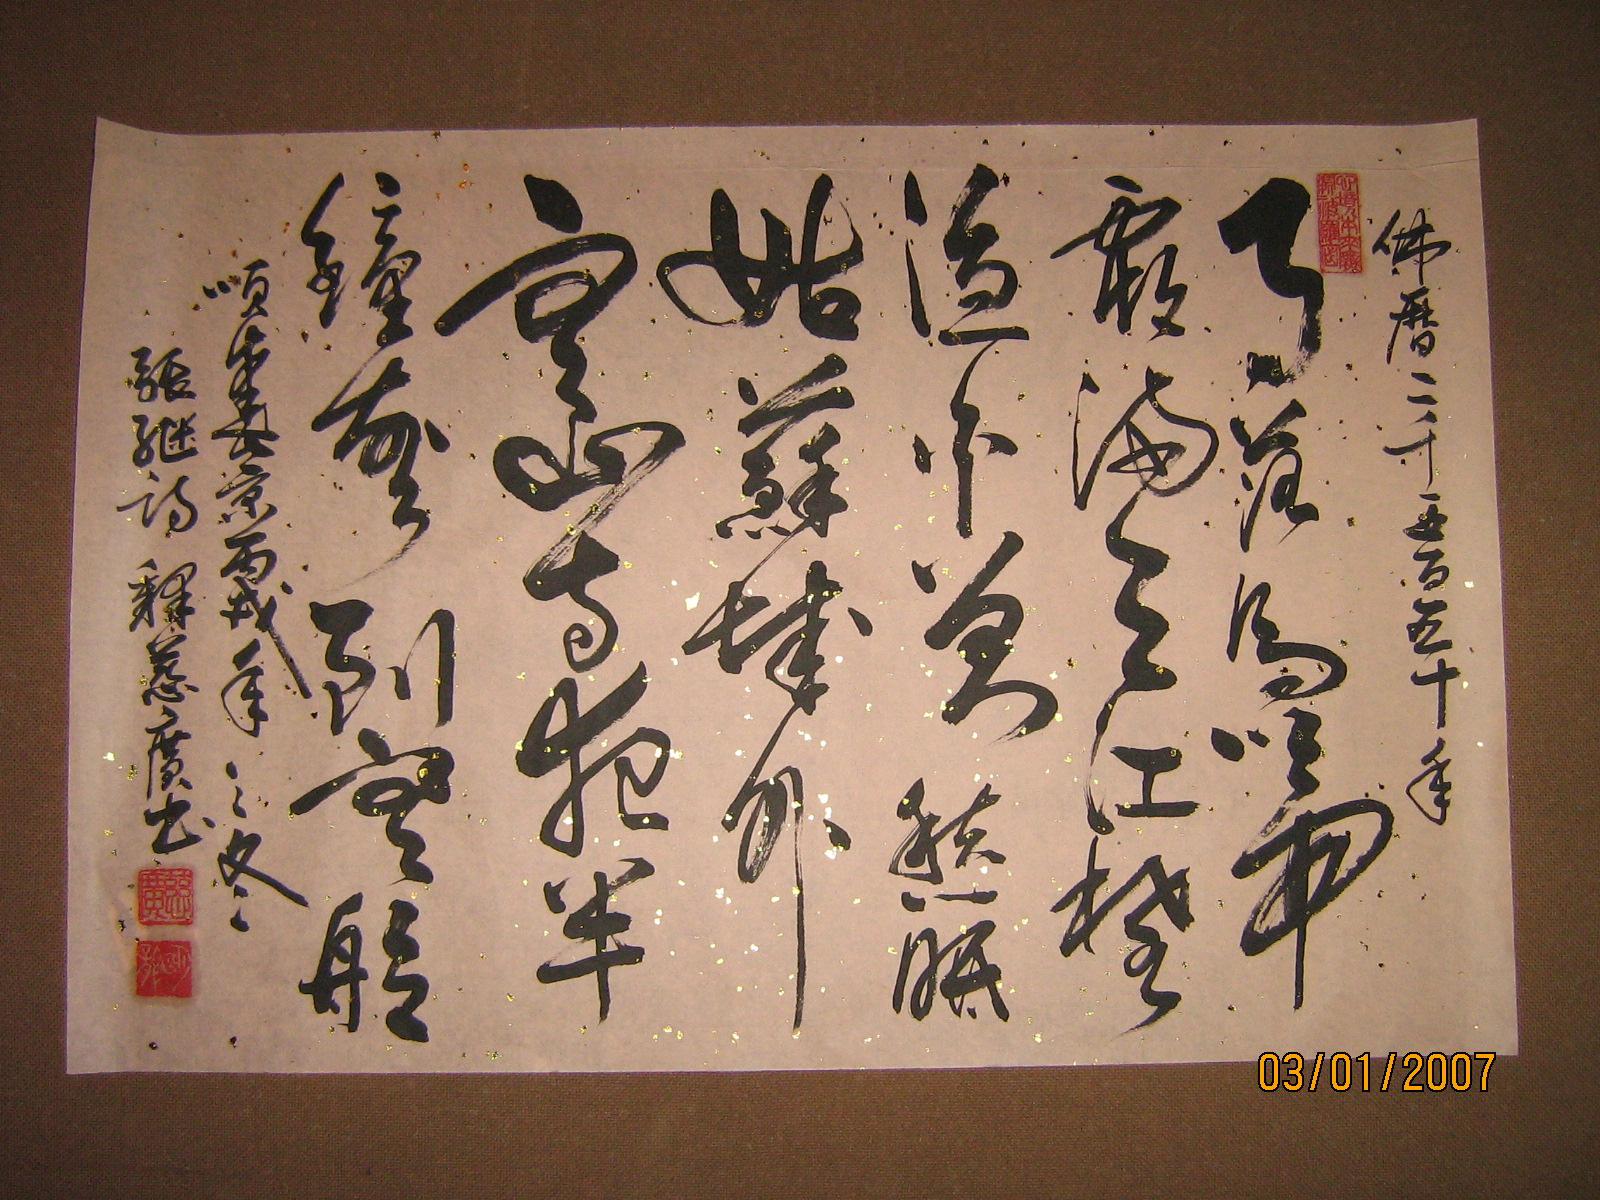 佛曆二千五百五十年
月落烏啼
霜滿天江楓
漁火對愁眠
姑蘇城外
寒山寺夜半
鐘聲到客船
京丙戌年之冬
張继詩 釋慈廣书
慈廣